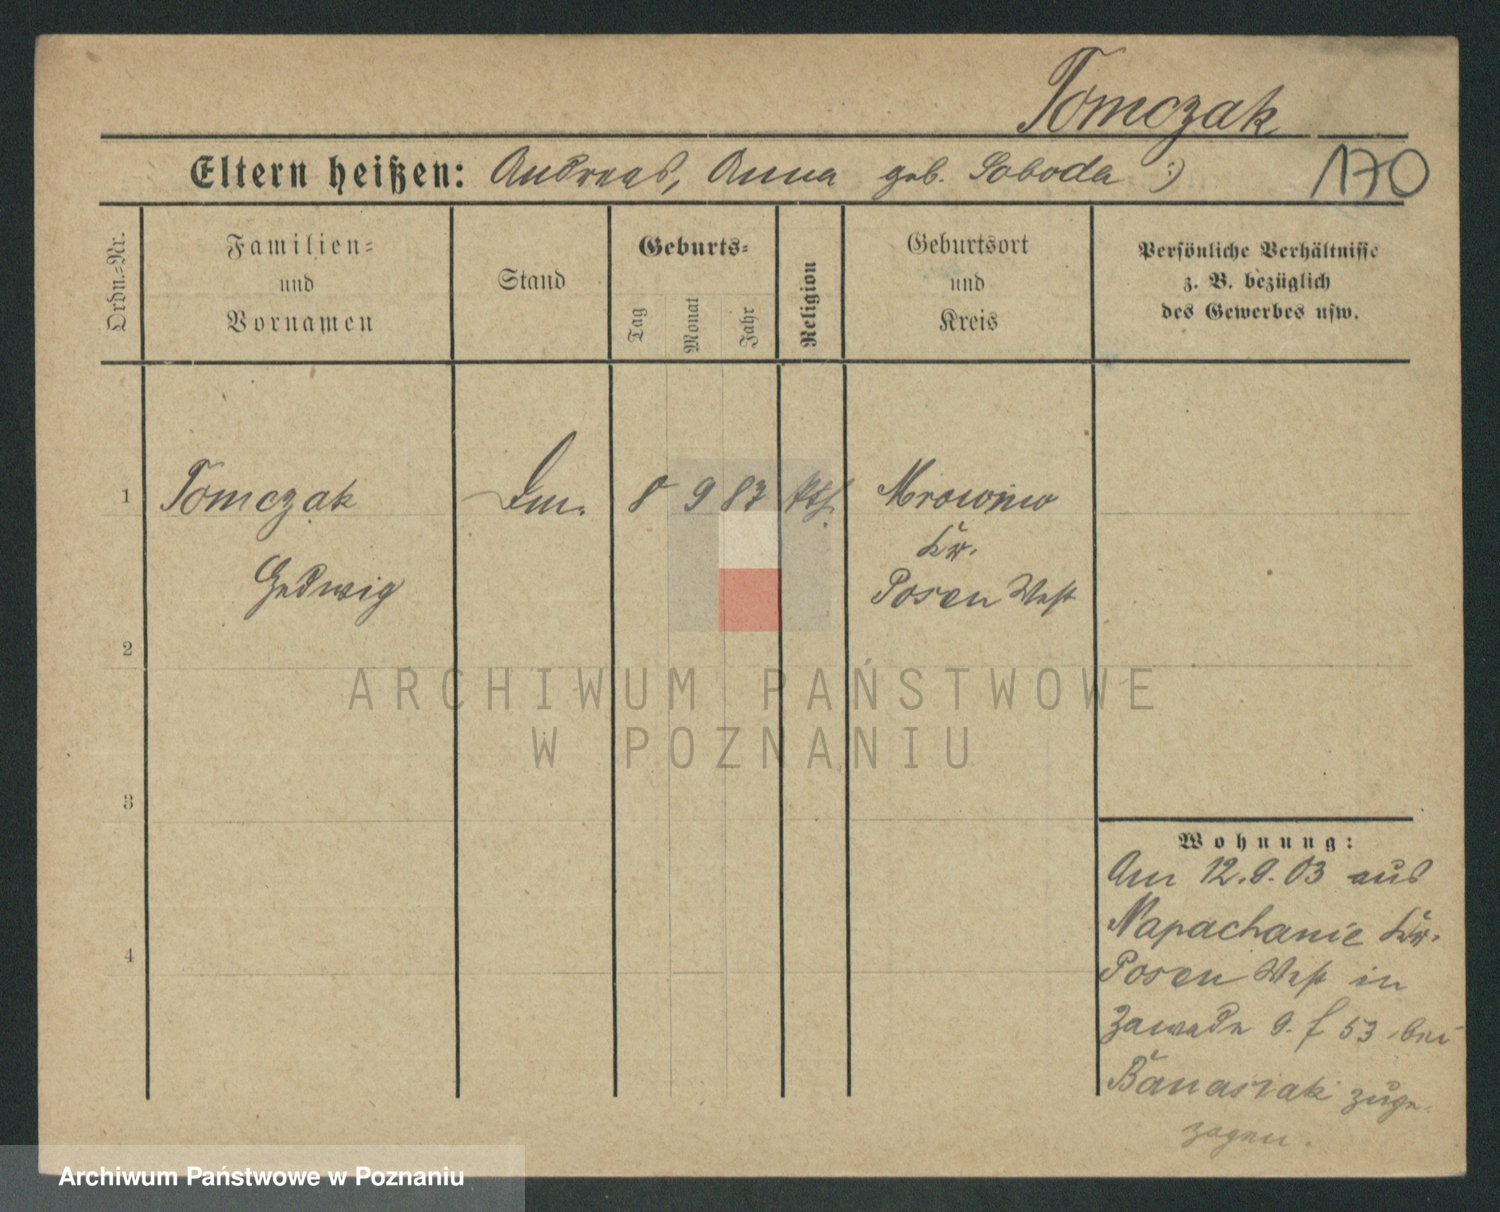 Tomczak
Eltern heißen: Andreas, Anna geb. Soboda :)
170
Ordn.-Nr.
Familien-
und
Vornamen
Stand
Geburts-
Tag
Monat
Jahr
Religion
Geburtsort
und
Kreis
Persönliche Verhältnisse
z. B. bezüglich
des Gewerbes usw.
1 Tomczak 8 9 87 kth. Mrowino
Kr.
Hedwig Posen West
2
3
4
ARCHIWUM PAŃSTWOWE
W POZNANIU
Wohnung:
Am 12.9.03 aus
Napachanie Kr.
Posen West in
Zawade 53 bei
Banaszak zuge-
zogen.
Archiwum Państwowe w Poznaniu